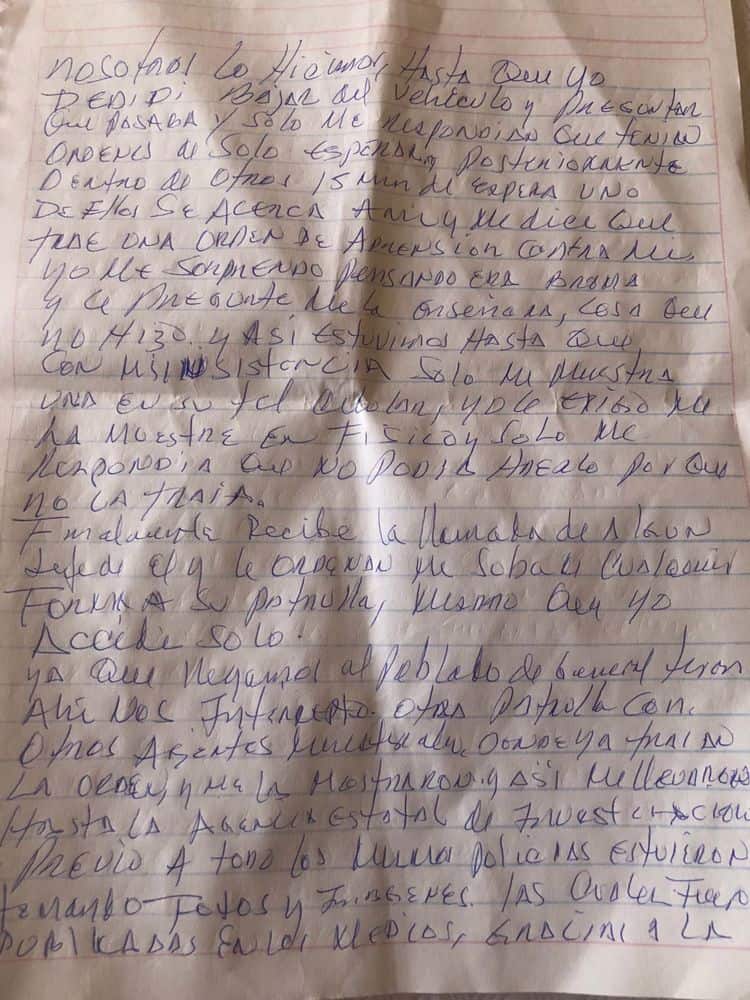 nosotros lo Hicimos, Hasta Que yo
DEDIDI BAJAR del vehículo y PREGUNTAR
QUE PASABA y Solo Me RESPONDIAN QUE TENIAN
ORDENES de Solo ESPERAR, POSTERIORMENTE
Dentro de Otros 15 min de ESPERA UNO
DE Ellos SE ACERCA A mi y Me dice Que
TRAE UNA ORDEN DE APRENSION CONTRA Mi,
yo Me SORPRENDO PENSANDO ERA BROMA
y le PREGUNTE Me la enseñara, COSA QUE
no Hizo. y ASÍ ESTUVIMOS HASTA QUE
CON MI INSISTENCIA Solo Me MUESTRA
UNA EN SU tel Celular, yo le EXIJO Me
LA MUESTRE EN FISICO y Solo Me
RESPONDIA QUE NO PODIA HACERLO POR QUE
no LA TRAIA.
Finalmente Recibe la llamada de Algun
Jefe de el y le ORDENAN Me Suba de Cualquier
FORMA A SU PATRULLA, Mismo Que yo
Accedi Solo.
ya Que llegamos al Poblado de General Teran
Ahi NOS Intercepto otra Patrulla Con
Otros Agentes DONDE YA TRAIAN
LA ORDEN, y ME LA MOSTRARON y ASÍ Me llevaron
HASTA LA AGENCIA ESTATAL de INVESTIGACION
PREVIO A todo los mismos POLICIAS ESTUVIERON
tomando Fotos y IMAGENES. las Cuales Fueron
PUBLIKADAS EN los MEDIOS, GRACIAS A LA